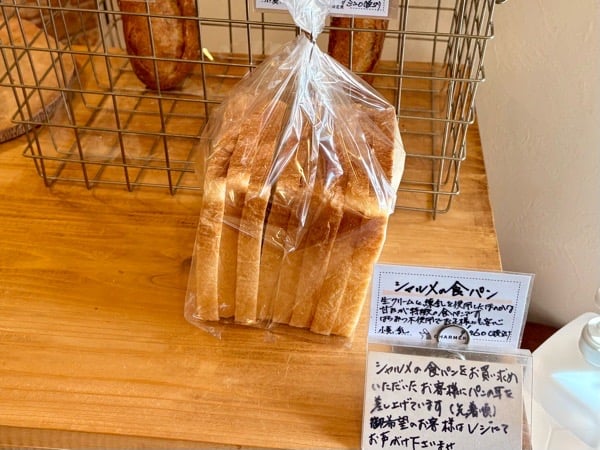 シャルメの食パン
生クリームと練乳を使用したほのかな
甘さが特徴の食パンです
はちみつ不使用でお子様も安心
小麦、乳
CHARMER
シャルメの食パンをお買い求め
いただいたお客様にパンの耳を
差し上げています(先着順)
御希望のお客様はレジにて
お声がけ下さいませ